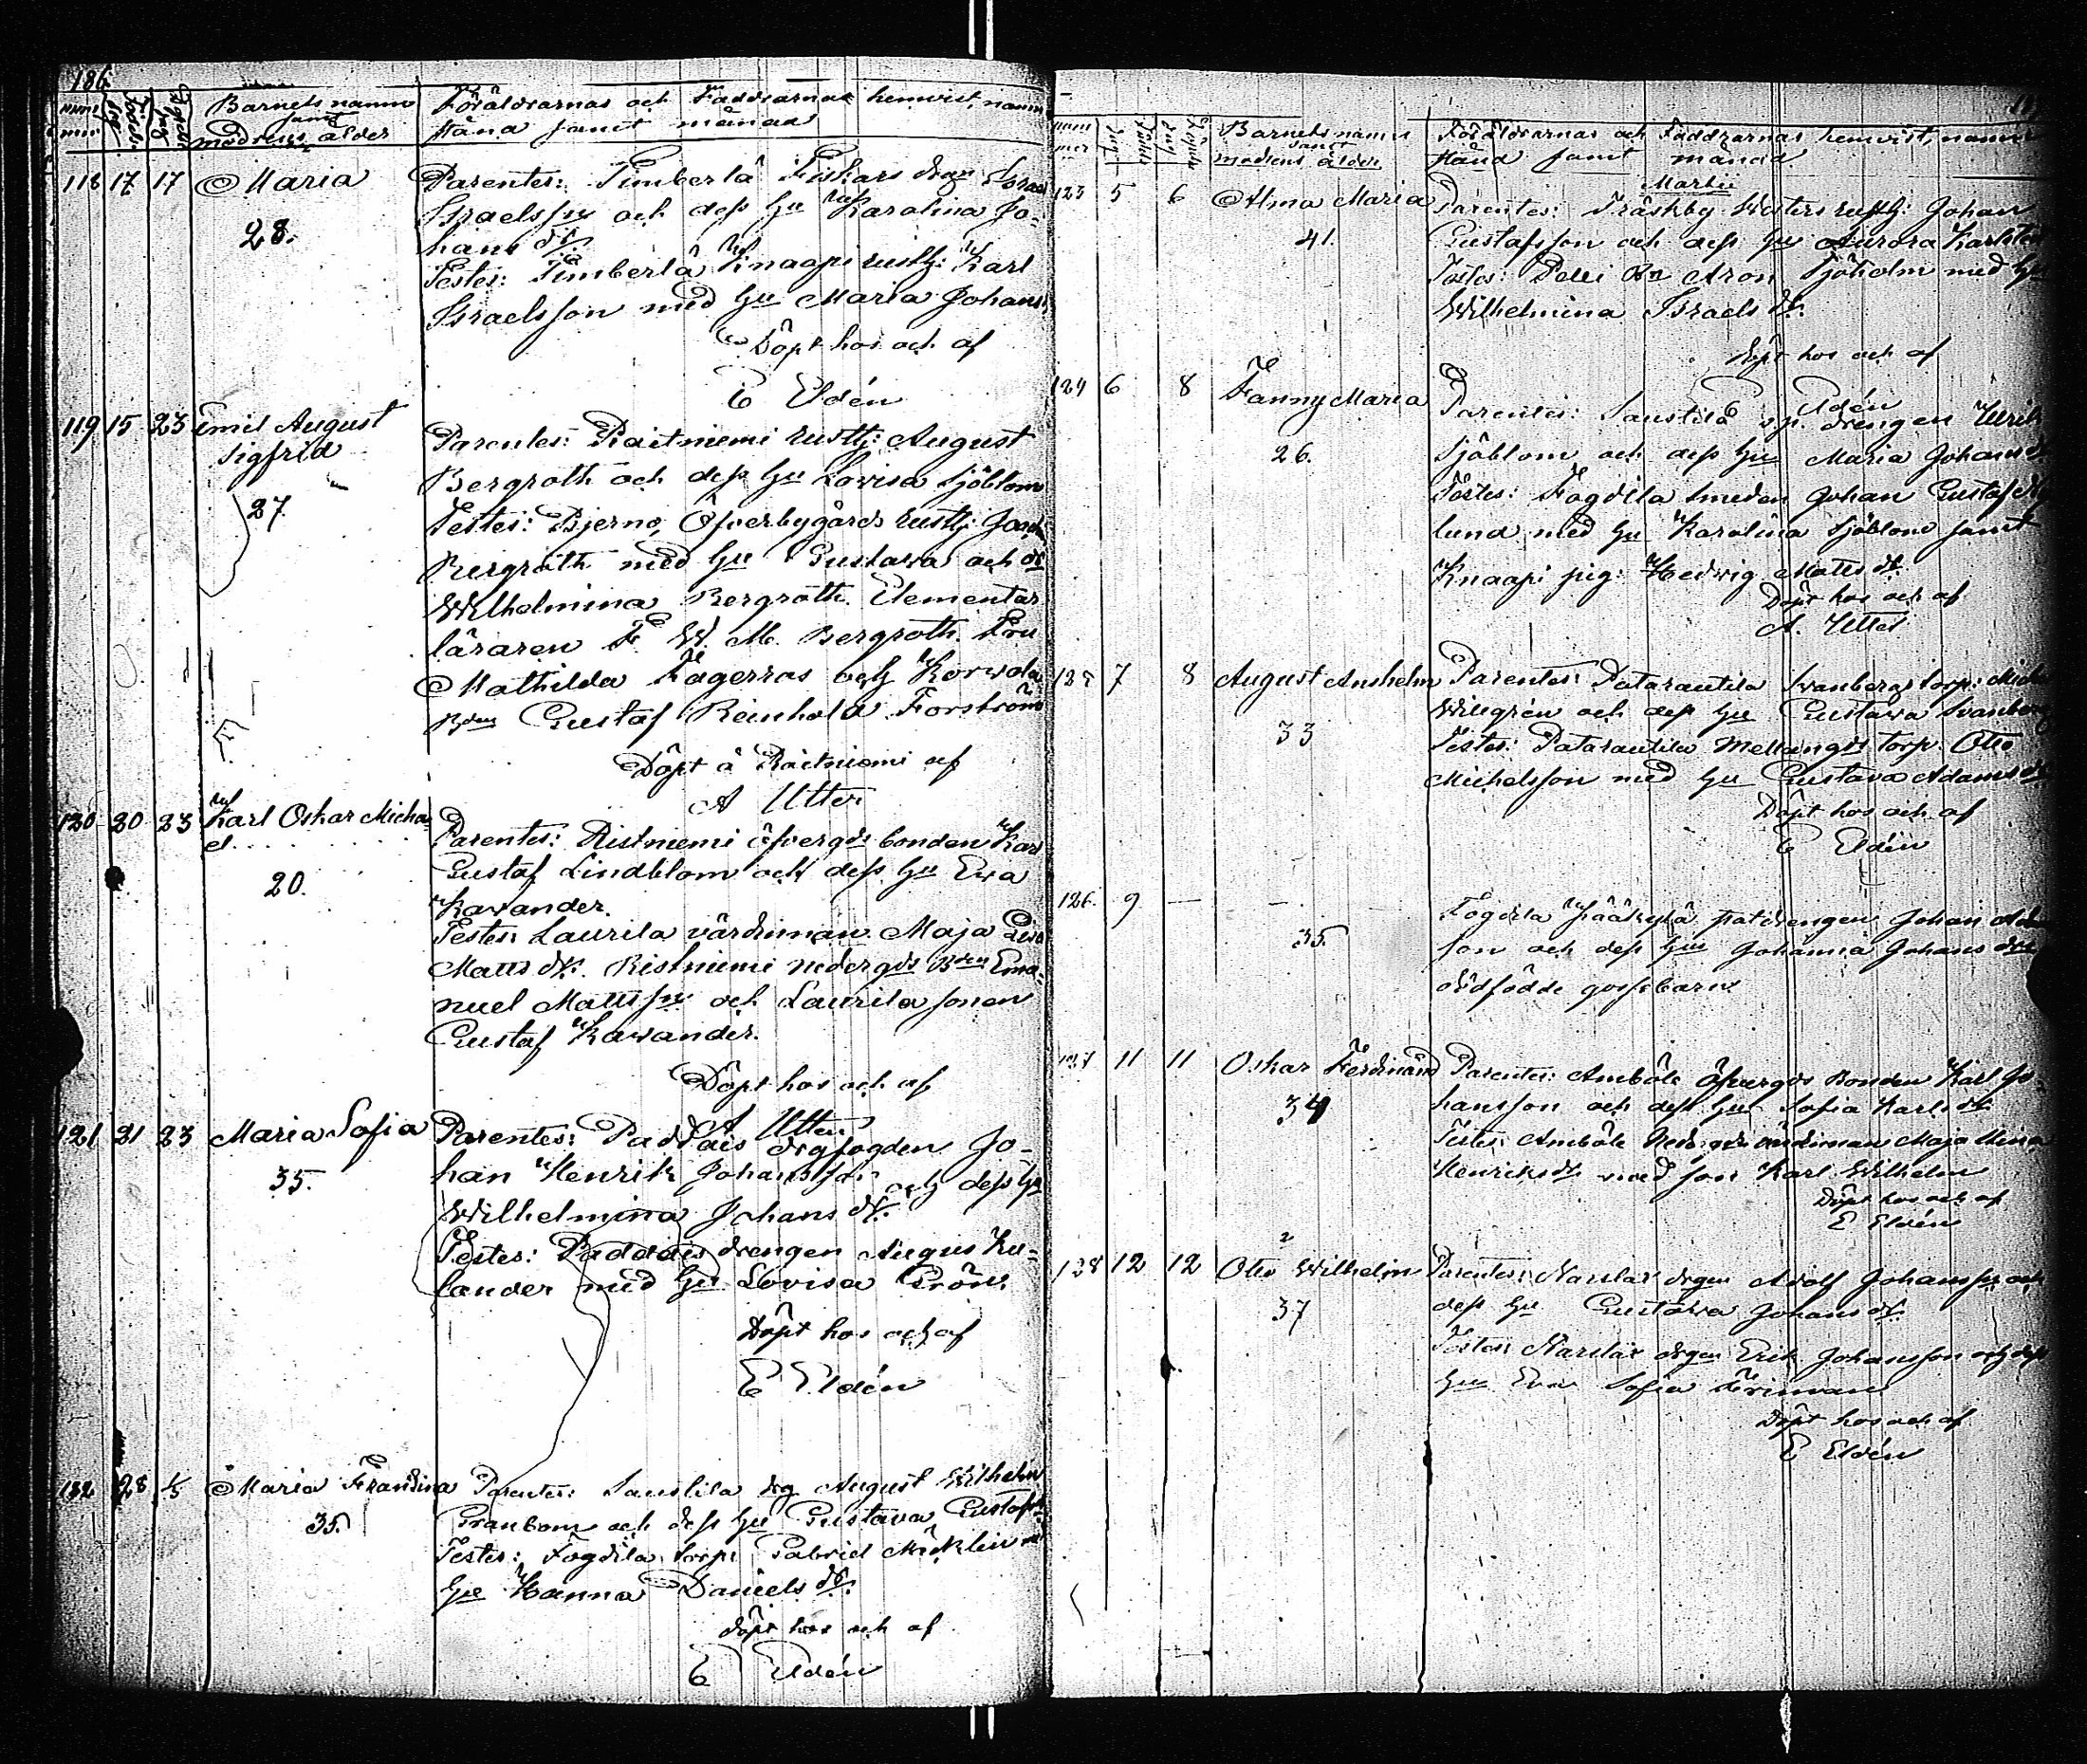 186
Barnets namn
samt
modrens ålder
Föräldrarnas och Faddrarnas hemvist, namn
stånd samt månad
118 17 17 Maria
28.
Parentes: Timberlä Fiskars
Israelsson och dess hu Karolina Jo-
hans dr.
Testes: Timberlä Knaapi rustg: Karl
Israelsson med hu Maria Johans
Döpt hos och af
E Eldén
119 15 23 Emil August
Sigfrid
27
Parentes: Raitniemi rustg: August
Bergroth och dess hu Lovisa Sjöblom
Testes: Bjerno, Öfverbygårds rustg:
Bergroth med hu Gustava och dr
Wilhelmina Bergroth. Elementar
läraren F. W. M. Bergroth. Fru
Mathilda Fagerros och Korvola
Bden Gustaf Reinhold Forström
Döpt å Raitniemi af
A Utter
120 20 23 Karl Oskar Micha
el
20.
Parentes: Ristniemi öfvergds bonden Karl
Gustaf Lindblom och dess hu Eva
Kavander.
Testes: Laurila värdinnan Maja Lisa
Matts dr. Ristniemi nedergds Bden Ema-
nuel Mattsson och Laurila sonen
Gustaf Kavander.
Döpt hos och af
A Utter
121 21 23 Maria Sofia
35.
Parentes: Paddais drgfogden Jo-
han Henrik Johansson och dess hu
Wilhelmina Johans dr.
Testes: Paddais drengen August Ku-
lander med hu Lovisa Grön.
Döpt hos och af
E Eldén
122 28 1/3 Maria Frandina
35.
Parentes: Saustila drg August Wilhelm
Granbom och dess hu Gustava Gustafs
Testes: Fogdila torp: Gabriel Mäcklin
hu Hanna Daniels dr.
döpt hos och af
E Eldén
Barnets namn
samt
modrens ålder
Föräldrarnas och Faddrarnas hemvist, namn
stånd samt månad
Martii
123 5 6 Alma Maria
41.
Parentes: Träskby Westers rustg: Johan
Gustafsson och dess hu Aurora Karlsten
Testes: Pelli Aron Sjöholm med hu
Wilhelmina Israels dr.
döpt hos och af
E Eldén
124 6 8 Fanny Maria
26.
Parentes: Saustila sp. drengen Henrik
Sjöblom och dess hu Maria Johans
Testes: Fogdila smeden Johan Gustaf
lund med hu Karolina Sjöblom samt
Knaapi pig: Hedvig Matts dr.
Döpt hos och af
A. Utter
125 7 8 August Anshelm
33
Parentes: Patarautila Svanbergs torp: Mich
Willgrén och dess hu Gustava Svanberg
Testes: Patarautila Mellangds torp: Otto
Michelsson med hu Gustava Adams dr
Döpt hos och af
E Eldén
126. 9 — —
35.
Fogdila Pääkylä patdrengen Johan
son och dess hu Johanna Johans dr
dödfödde gossebarn
127 11 11 Oskar Ferdinand
34
Parentes: Amböle Öfvergds Bonden Karl Jo-
hansson och dess hu Sofia Karls dr
Testes: Amböle Nedergds värdinnan Maja Stina
Henriks dr med son Karl Wilhelm
Döpt hos och af
E Eldén
128 12 12 Otto Wilhelm
37
Parentes: Narslax drgen Adolf Johansson och
dess hu Gustava Johans dr.
Testes: Narslax drgen Erik Johansson och dess
hu Eva Sofia
Döpt hos och af
E Eldén